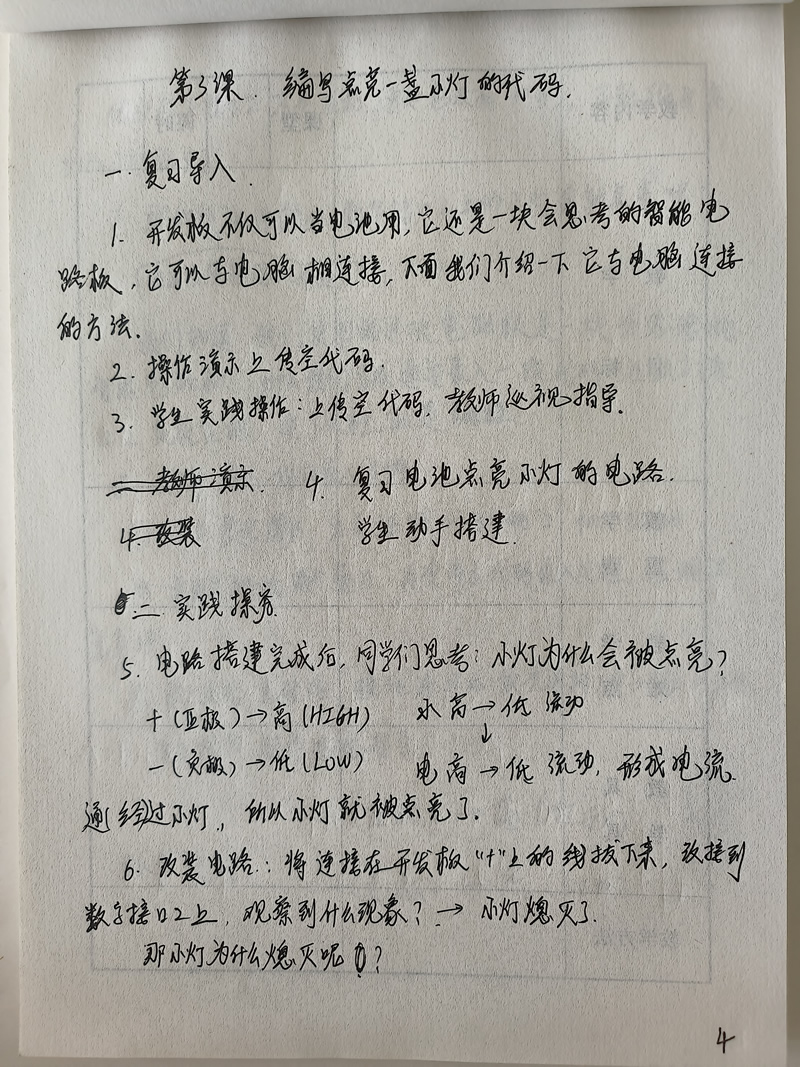 第3课. 编写点亮一盏小灯的代码.
一. 复习导入.
1. 开发板不仅可以当电池用, 它还是一块会思考的智能电
路板, 它可以与电脑相连接, 下面我们介绍一下它与电脑连接
的方法.
2. 操作演示上传空代码.
3. 学生实践操作: 上传空代码. 教师巡视指导.
二 教师演示. 4. 复习电池点亮小灯的电路.
4. 改装 学生动手搭建.
二 实践探究.
5. 电路搭建完成后, 同学们思考: 小灯为什么会被点亮?
+(正极)→高(HIGH) 水 高→低 流动
↓
-(负极)→低(LOW) 电 高→低 流动, 形成电流.
通(经)过小灯, 所以小灯就被点亮了.
6. 改装电路: 将连接在开发板"+"上的线拔下来, 改接到
数字接口2上, 观察到什么现象? → 小灯熄灭了.
那小灯为什么熄灭呢?
4